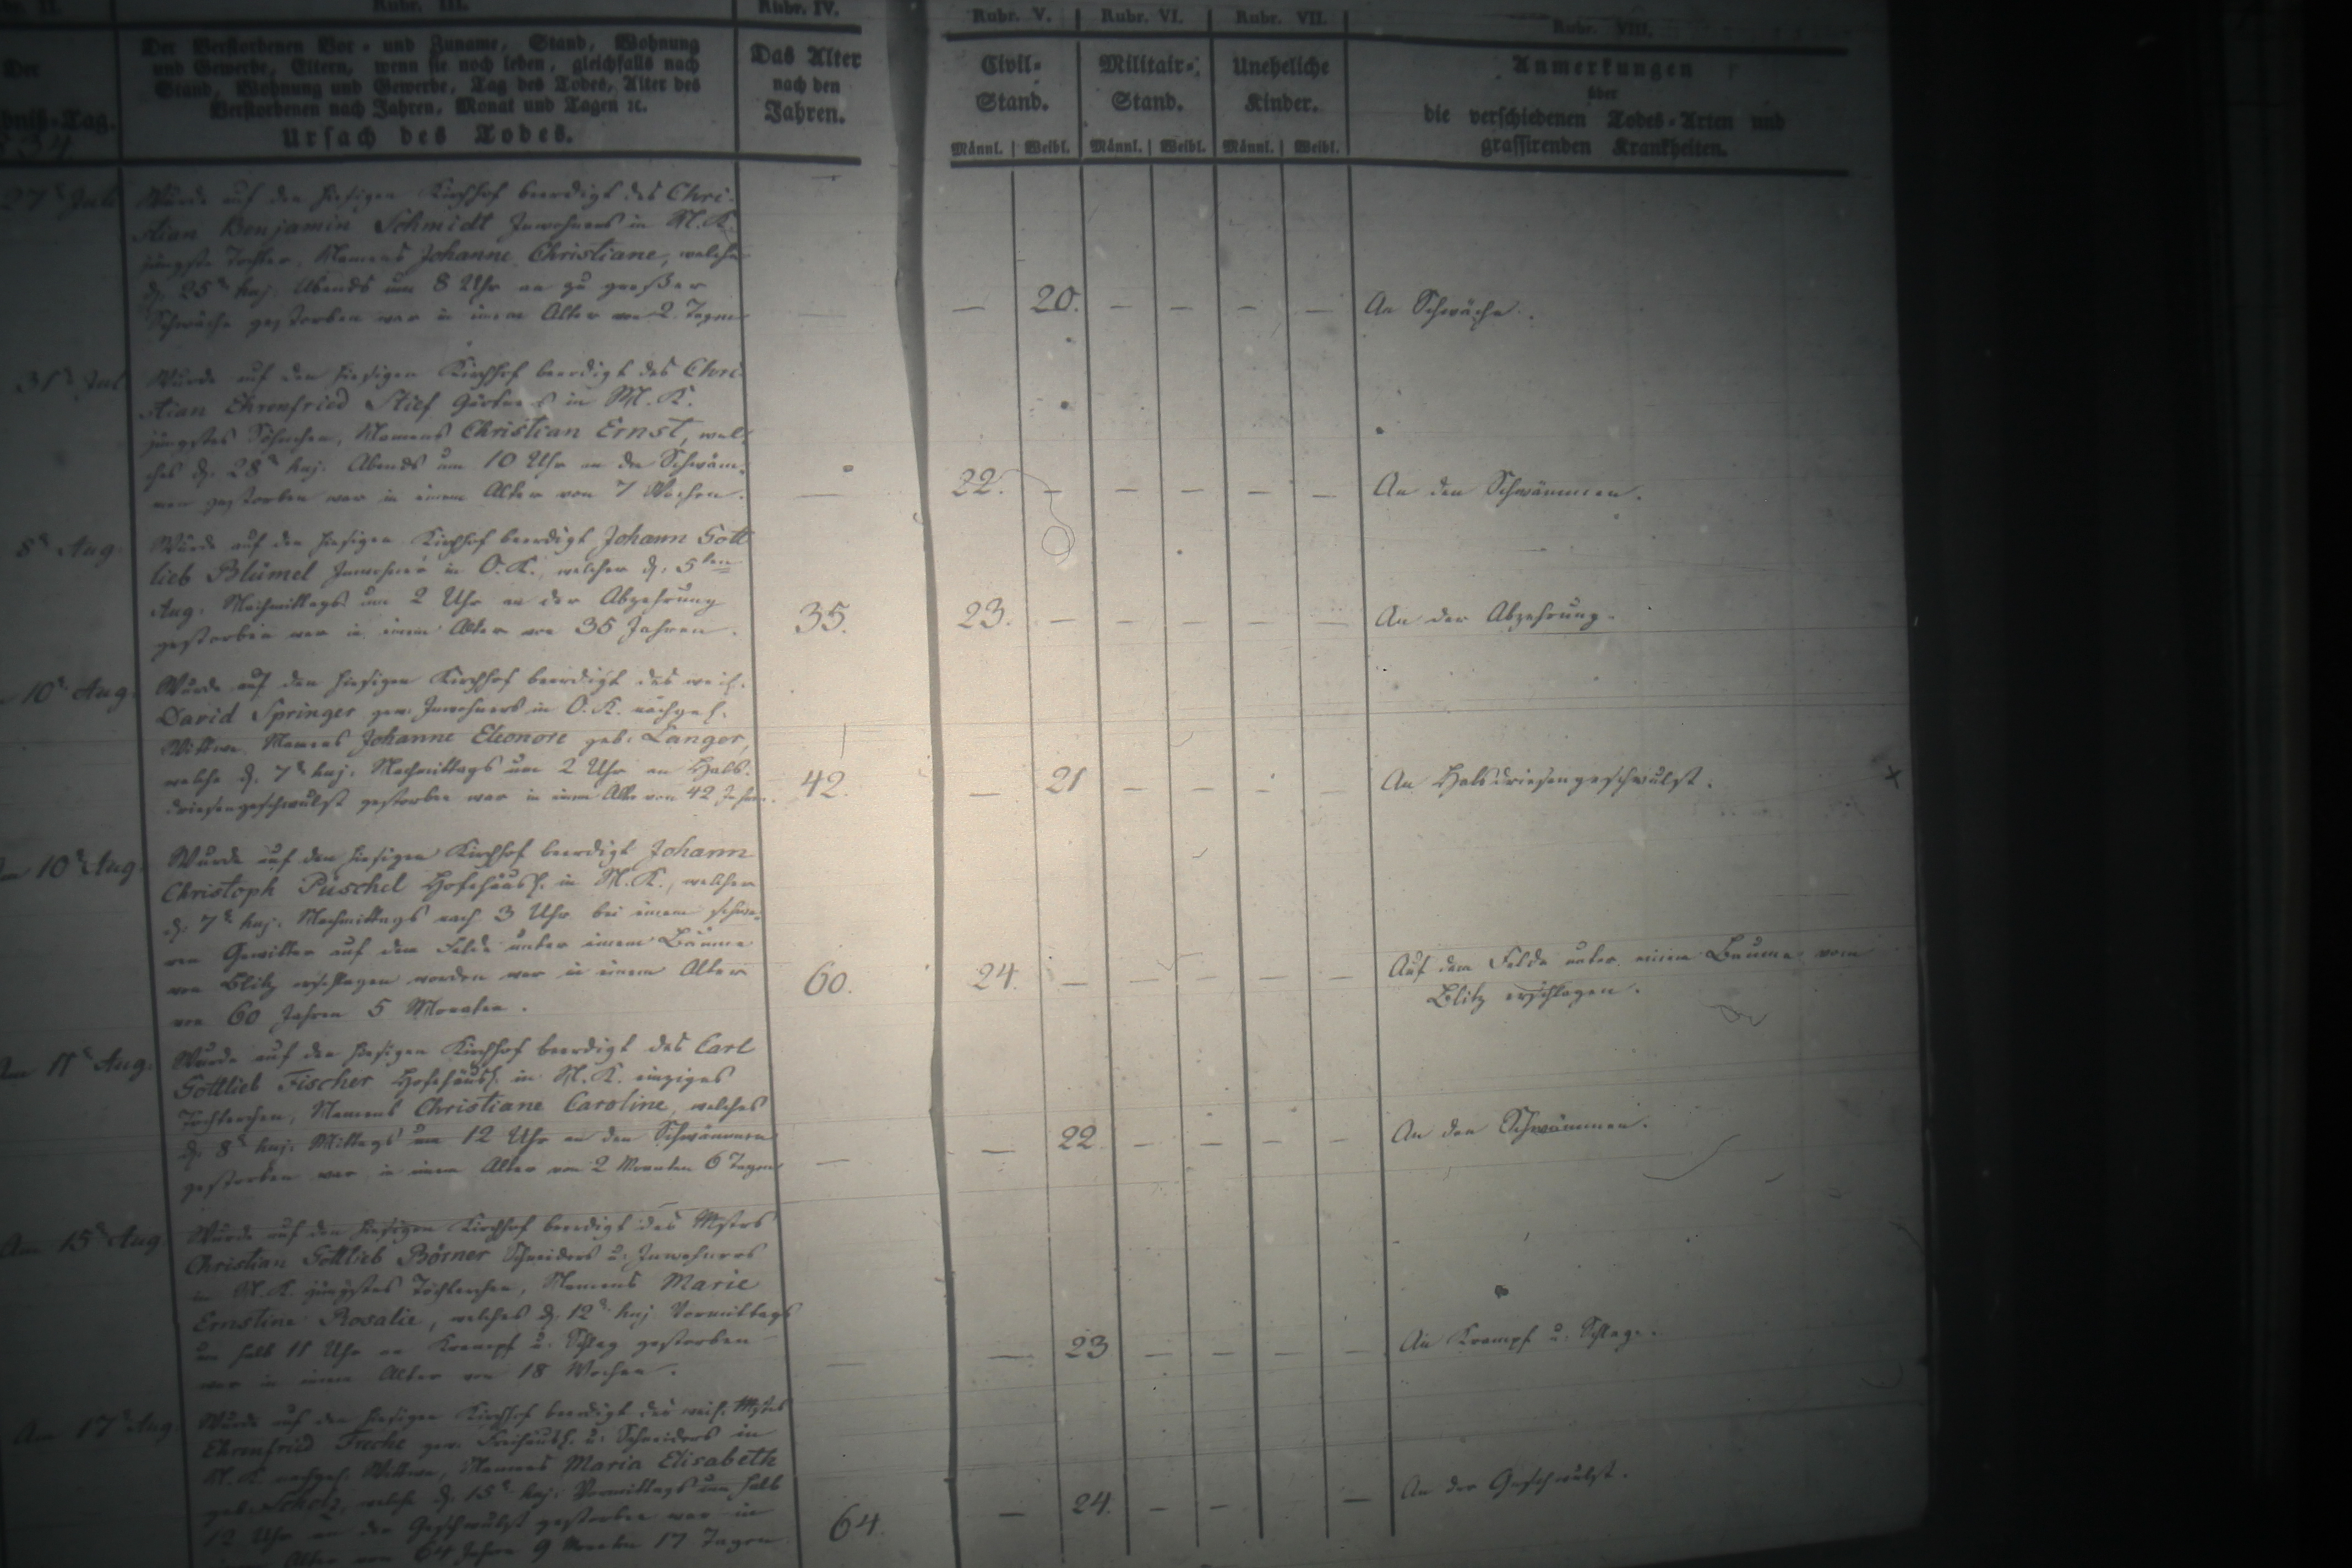 Rubr. III.
Rubr. IV.
Rubr. V.
Rubr. VI.
Rubr. VII.
Rubr. VIII.
Der
bniß-Tag.
34
Der Verstorbenen Vor- und Zuname, Stand, Wohnung
und Gewerbe, Eltern, wenn sie noch leben, gleichfalls nach
Stand, Wohnung und Gewerbe, Tag des Todes, Alter des
Verstorbenen nach Jahren, Monat und Tagen ꝛc.
Ursach des Todes.
Das Alter
nach den
Jahren.
Civil-
Stand.
Militair-
Stand.
Uneheliche
Kinder.
Männl. Weibl. Männl. Weibl. Männl. Weibl.
Anmerkungen
über
die verschiedenen Todes-Arten und
grassirenden Krankheiten.
27t Juli
Wurde auf den hiesigen Kirchhof beerdigt des Chri-
stian Benjamin Schmidt Inwohners in M. K.
jüngste Tochter, Namens Johanne Christiane, welche
d. 25t huj. Abends um 8 Uhr an zu großer
Schwäche gestorben war in einem Alter von 2 Tagen
— 20. — — — —
An Schwäche.
31t Jul
Wurde auf den hiesigen Kirchhof beerdigt des Chri-
stian Ehrenfried Stief Gärtners in M. K.
jüngstes Söhnchen, Namens Christian Ernst, wel-
ches d. 28t huj. Abends um 10 Uhr an den Schwäm-
men gestorben war in einem Alter von 7 Wochen.
— 22. — — — — —
An den Schwämmen.
8t Aug.
Wurde auf den hiesigen Kirchhof beerdigt Johann Gott
lieb Blümel Inwohner in O. K., welcher d. 5ten
Aug. Nachmittags um 2 Uhr an der Abzehrung
gestorben war in einem Alter von 35 Jahren.
35. 23. — — — — —
An der Abzehrung.
10t Aug.
Wurde auf den hiesigen Kirchhof beerdigt des weil.
David Springer gew. Inwohners in O. K. nachgel.
Wittwe, Namens Johanne Eleonore geb. Langer,
welche d. 7t huj. Nachmittags um 2 Uhr an Hals-
driesengeschwulst gestorben war in einem Alter von 42 Jahren.
42. — 21 — — — —
An Halsdriesengeschwulst.
10t Aug.
Wurde auf den hiesigen Kirchhof beerdigt Johann
Christoph Püschel Hofehäusl. in M. K., welcher
d. 7t huj. Nachmittags nach 3 Uhr bei einem schwe-
ren Gewitter auf dem Felde unter einem Baume
vom Blitz erschlagen worden war in einem Alter
von 60 Jahren 5 Monaten.
60. 24. — — — — —
Auf dem Felde unter einem Baume vom
Blitz erschlagen.
Am 11t Aug.
Wurde auf den hiesigen Kirchhof beerdigt des Carl
Gottlieb Fischer Hofehäusl. in M. K. einziges
Töchterchen, Namens Christiane Caroline, welches
d. 8t huj. Mittags um 12 Uhr an den Schwämmen
gestorben war in einem Alter von 2 Monaten 6 Tagen
— — 22 — — — —
An den Schwämmen.
Am 15t Aug
Wurde auf den hiesigen Kirchhof beerdigt des Mstrs
Christian Gottlieb Börner Schneiders u. Inwohners
in M. K. jüngstes Töchterchen, Namens Marie
Ernstine Rosalie, welches d. 12t huj Vormittags
um halb 11 Uhr an Krampf u. Schlag gestorben
war in einem Alter von 18 Wochen.
— — 23 — — — —
An Krampf u. Schlage.
Am 17t Aug.
Wurde auf den hiesigen Kirchhof beerdigt des weil. Mstrs
Ehrenfried gew. Freihäusl. u. Schneiders in
M. K. nachgel. Wittwe, Namens Maria Elisabeth
geb. Scholz, welche d. 15t huj. Vormittags um halb
12 Uhr an der Geschwulst gestorben war in
einem Alter von 64 Jahren 9 Monaten 17 Tagen
64. — 24. — — —
An der Geschwulst.